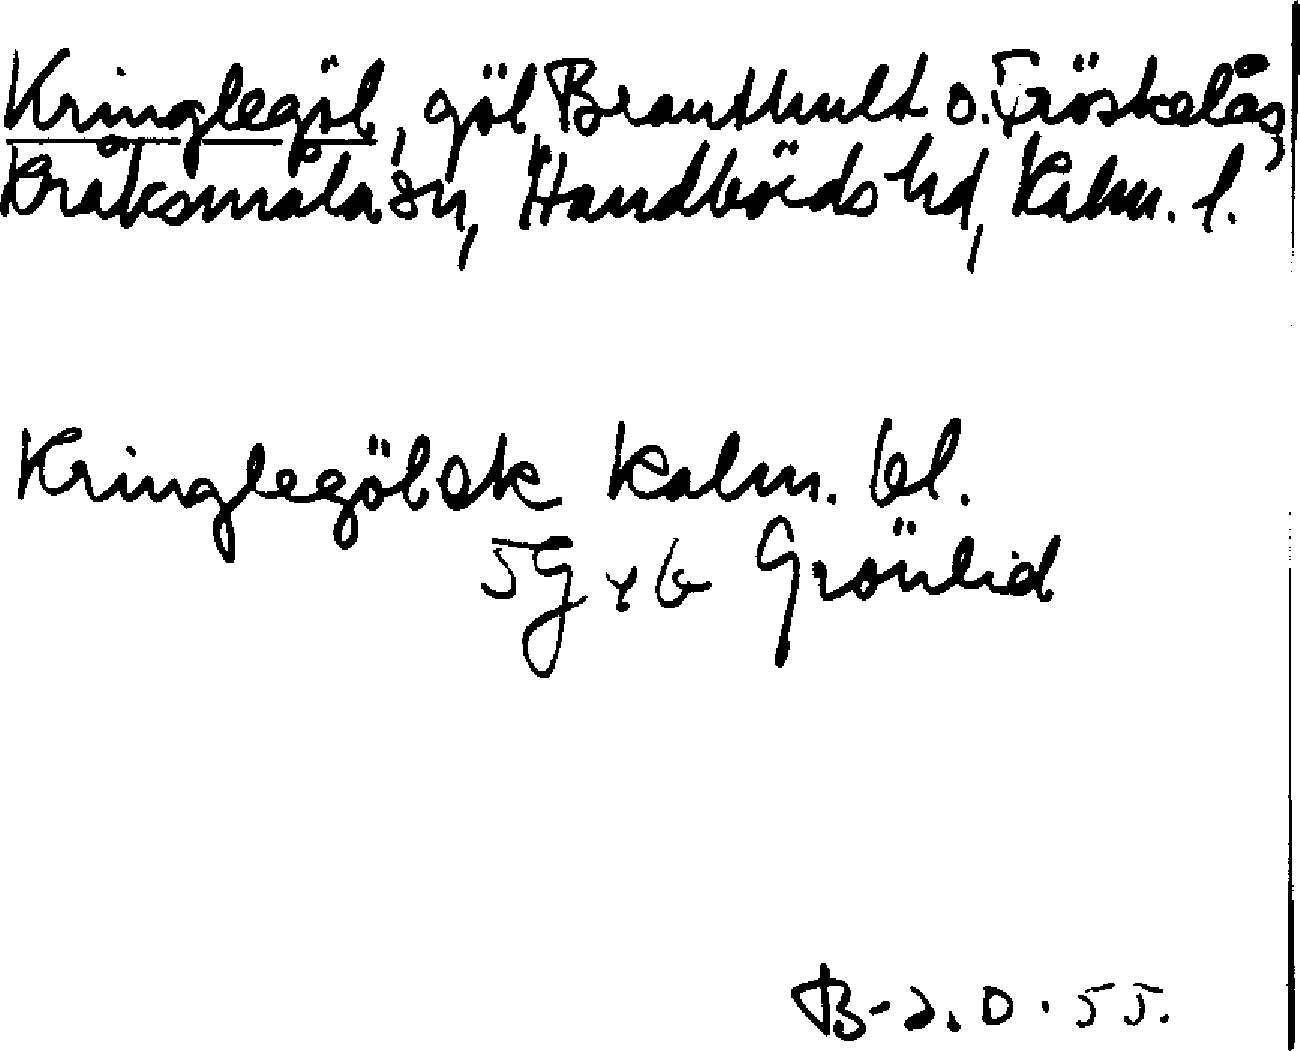 Kringlegöl, göl Branthult o. Fröskelås
Kråksmåla sn, Handbörds hd, Kalm. l.
Kringlegöl ek Kalm. bl.
5G x b Grönlid
B-d. O. 55.